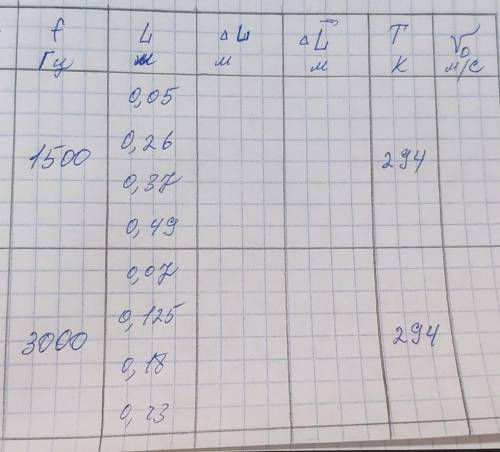 f L ΔL ΔL̅ T v₀
Гц м м м К м/с
0,05
0,26
1500 294
0,37
0,49
0,07
0,125
3000 294
0,18
0,23